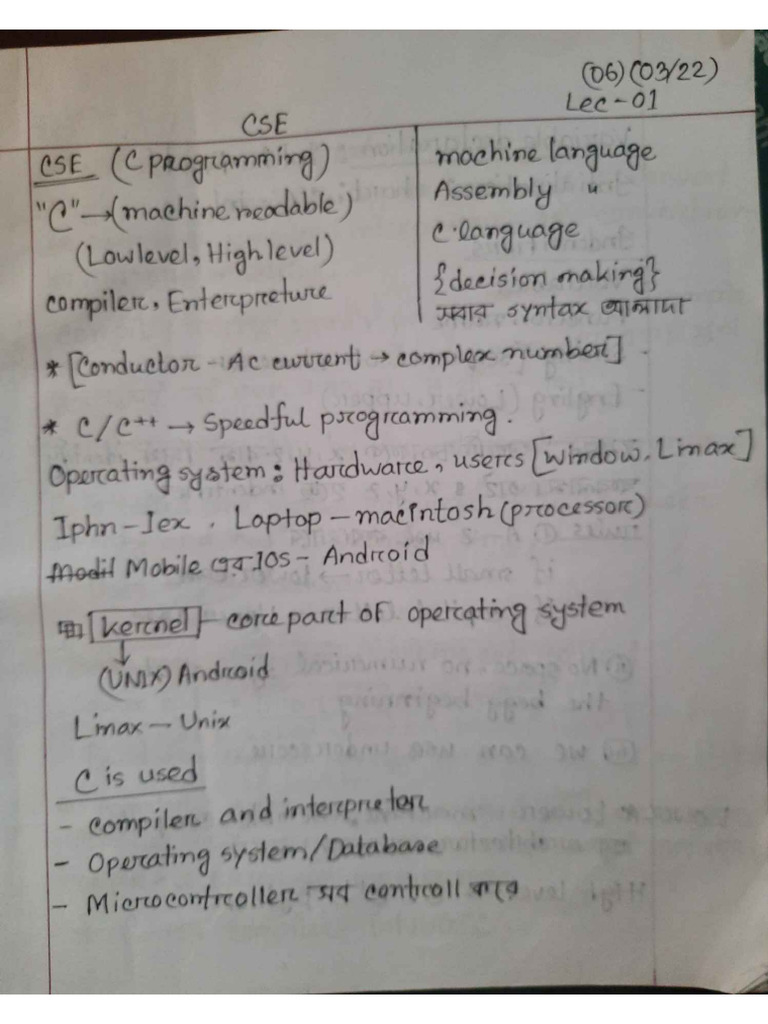 (06)(03/22)
Lec-01
CSE
CSE (C programming)
"C"→(machine readable)
(Lowlevel, High level)
compiler, Enterpreture
machine language
Assembly "
C language
{decision making}
সবার syntax আলাদা
* [Conductor - Ac current → complex number]
* C/C++ → Speedful programming.
Operating system: Hardware, users [window, Limax]
Iphn-Iex, Laptop-macintosh(processor)
Mobile এর IOS - Android
[kernel]- core part of operating system
↓
(UNIX) Android
Limax - Unix
C is used
- compiler and interpreter
- Operating system/Database
- Microcontroller সব controll করে